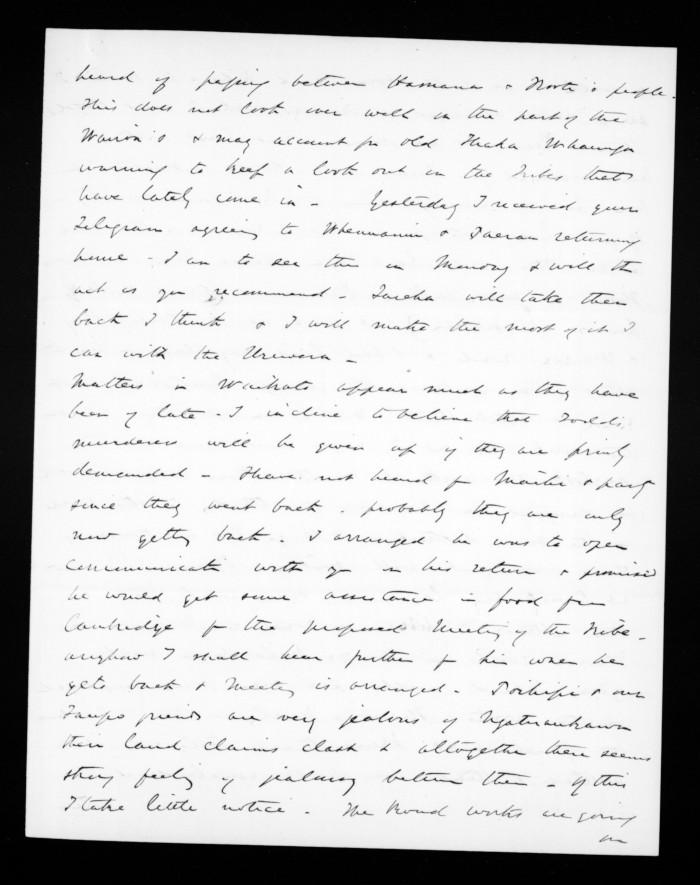 heard of passing between Hamana & North's people.
This does not look over well on the part of the
Wairoa's & may account for old Ihaka Whaanga
warning to keep a look out on the Tribes that
have lately come in - Yesterday I received your
Telegram agreeing to Whenuanui & Paerau returning
home - I am to see them on Monday & will then
act as you recommend - will take them
back I think & I will make the most of it I
can with the Urewera -
Matters in Waikato appear much as they have
been of late - I incline to believe that Todds
murderers will be given up if they are firmly
demanded - I have not heard fm & party
since they went back - probably they are only
now getting back. I arranged he was to open
communicate with you on his return & promised
he would get some assistance in food from
Cambridge for the proposed Meeting of the Tribe -
anyhow I shall hear further fm him when he
gets back & Meeting is arranged - Poihipi & our
Taupo friends are very jealous of Ngatiraukawa
their land claims clash & altogether there seems
strong feeling of jealousy between them - Of this
I take little notice - The Road works are going
on